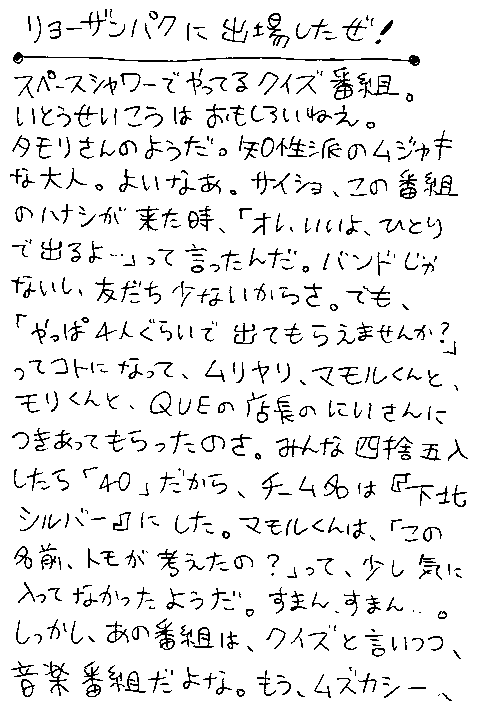 リョーザンパクに出場したぜ!
スペースシャワーでやってるクイズ番組。
いとうせいこうはおもしろいねえ。
タモリさんのようだ。知性派のムジャキ
な大人。よいなあ。サイショ、この番組
のハナシが来た時、「オレ、いいよ、ひとり
で出るよ…」って言ったんだ。バンドじゃ
ないし、友だち少ないからさ。でも、
「やっぱ4人ぐらいで出てもらえませんか?」
ってコトになって、ムリヤリ、マモルくんと、
モリくんと、QUEの店長のにいさんに
つきあってもらったのさ。みんな四捨五入
したら「40」だから、チーム名は『下北
シルバー』にした。マモルくんは、「この
名前、トモが考えたの?」って、少し気に
入ってなかったようだ。すまん、すまん…。
しっかし、あの番組は、クイズと言いつつ、
音楽番組だよな。もう、ムズカシー、